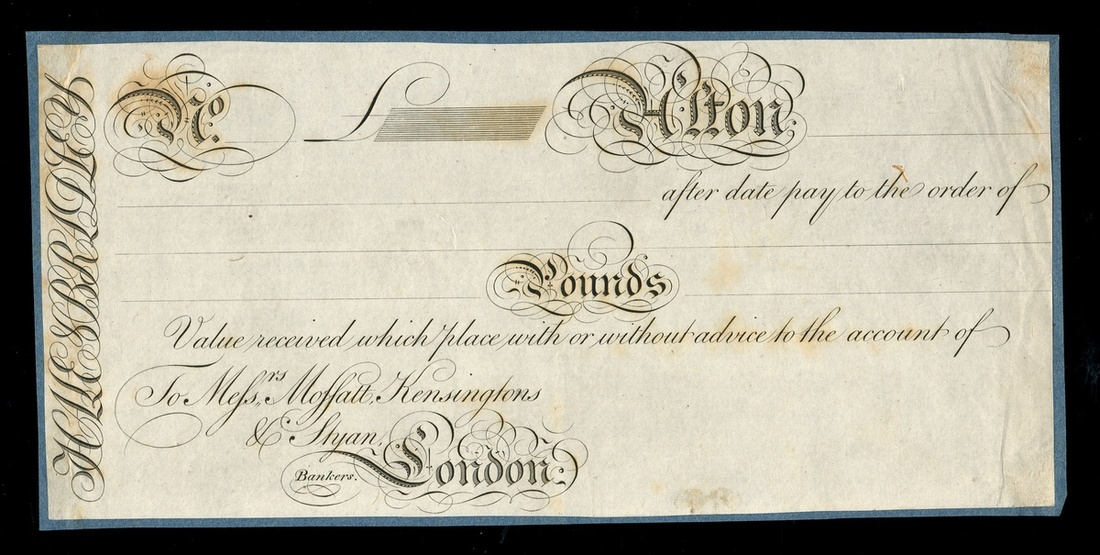 HALE & BRADLEY
No. £ Alton
after date pay to the order of
Pounds
Value received which place with or without advice to the account of
To Messrs. Moffatt, Kensingtons
& Styan,
Bankers. London.